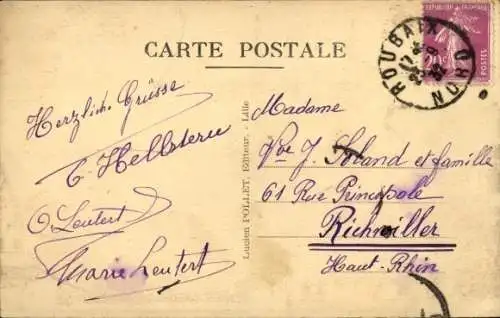 CARTE POSTALE
RÉPUBLIQUE FRANÇAISE
20c
POSTES
ROUBAIX
NORD
Herzliche Grüsse
O. Leutert
Marie Leutert
Lucien POLLET, Editeur. - Lille
Madame
Vve J. Soland et famille
61 Rue Principale
Richwiller
Haut-Rhin